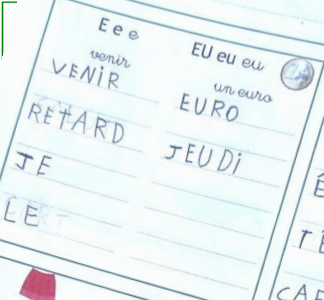 E e e
venir
VENIR
RETARD
JE
LE
EU eu eu
un euro
EURO
JEUDI